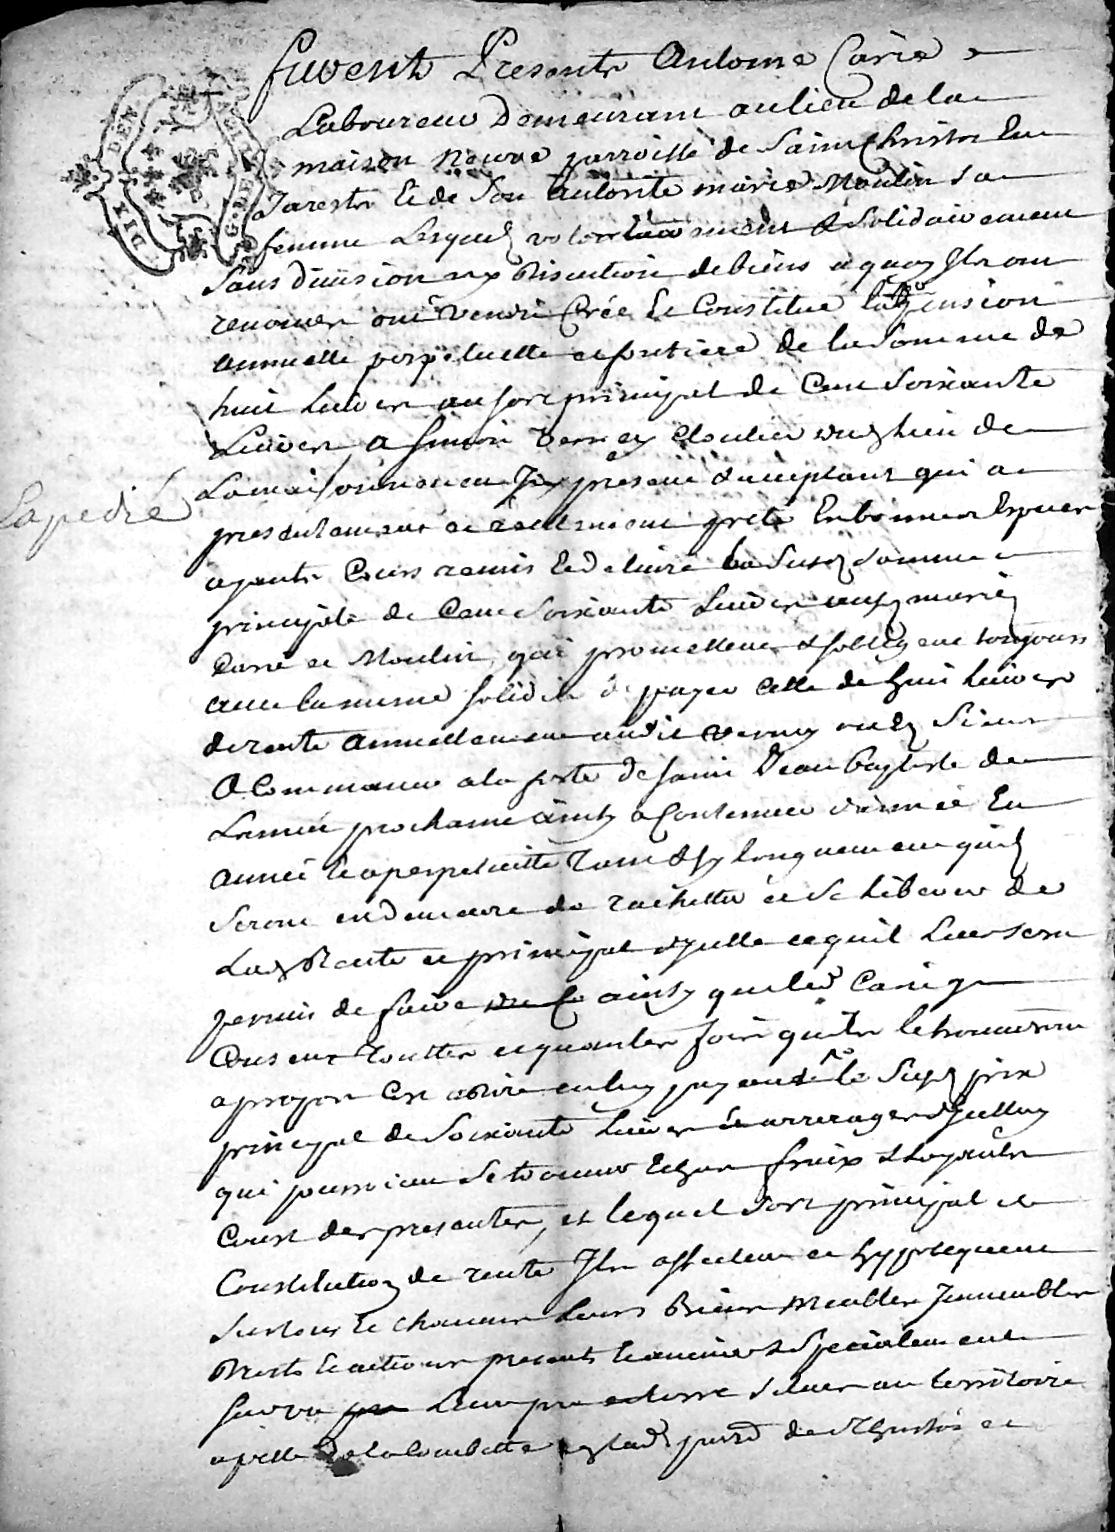 furent Presents Antoine Carié
Laboureur Demeurant au lieu de la
maison neuve parroisse de Saint Christo En
Jarests Et de Son autorité marie Moulin Sa
femme Lesquels volontairement & Solidairement
Sans Division ny Discution de biens a quoy Ils ont
renoncer ont vendu Créé Et Constitué la pension
annuelle perpetuelle et fontiere de la Somme de
huit Livres au sort principal de Cent Soixante
Livres a Simon Verney Cloutier dud lieu de
La maison neuve Icy présent & acceptant qui a
presentement et réellement preté En bonnes Espèces
ayants Cours remis Et delivré la Susd Somme
principale de Cent Soixante Livres auxd mariés
Carié et Moulin, qui promettent & sobligent toujours
avec la meme solidité de payer celle de huit Livres
de rente annuellement audit Verney ou es Siens
A Commancer a la feste de saint Jean Baptiste de
Lannée prochaine ainsy a Continuer d'année En
année Et a perpetuitté Tant & sy longuement quils
Seront en demeure de rachetter et Se Liberer de
Lad Rente et principal dycelle ce quil Leur sera
permis de faire ainsy que led Carié
Consent Touttes et quantes fois quils le trouveront
a propos En payant le Susd prix
principal de Soixante Livres & arrerages dycelluy
qui pourroient Se trouver Echus fraix & Loyaux
Cousts des presentes, et lequel Sort principal et
Constitution de rente Ils affectent et hypotequent
Sur tous Et chacuns Leurs Biens Meubles Immeubles
Droits Et actions presents Et avenirs & Specialement
Sur un Leur pré et terre Situés au territoire
apellé de la Combette en lad parr de St Christo et
La pedié
DIX DEN
G. DE LYON